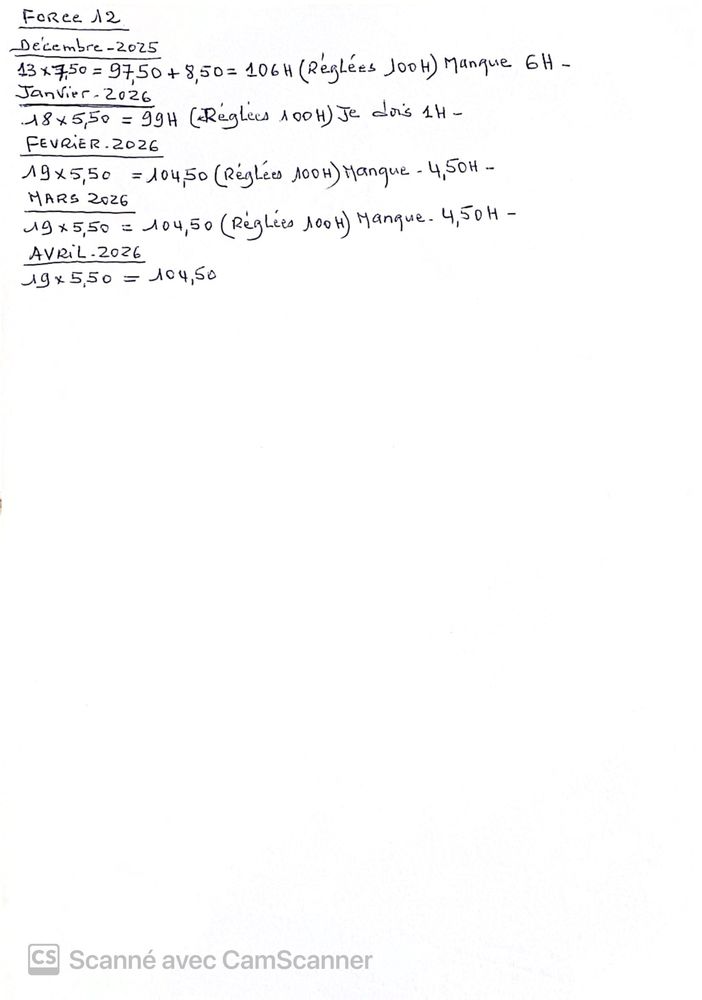 Force 12
Décembre-2025
13 x 7,50 = 97,50 + 8,50 = 106H (Réglées 100H) Manque 6H -
Janvier - 2026
18 x 5,50 = 99H (Réglées 100H) Je dois 1H -
FEVRIER.2026
19 x 5,50 = 104,50 (Réglées 100H) Manque - 4,50H -
MARS 2026
19 x 5,50 = 104,50 (Réglées 100H) Manque - 4,50H -
AVRIL.2026
19 x 5,50 = 104,50
CS Scanné avec CamScanner